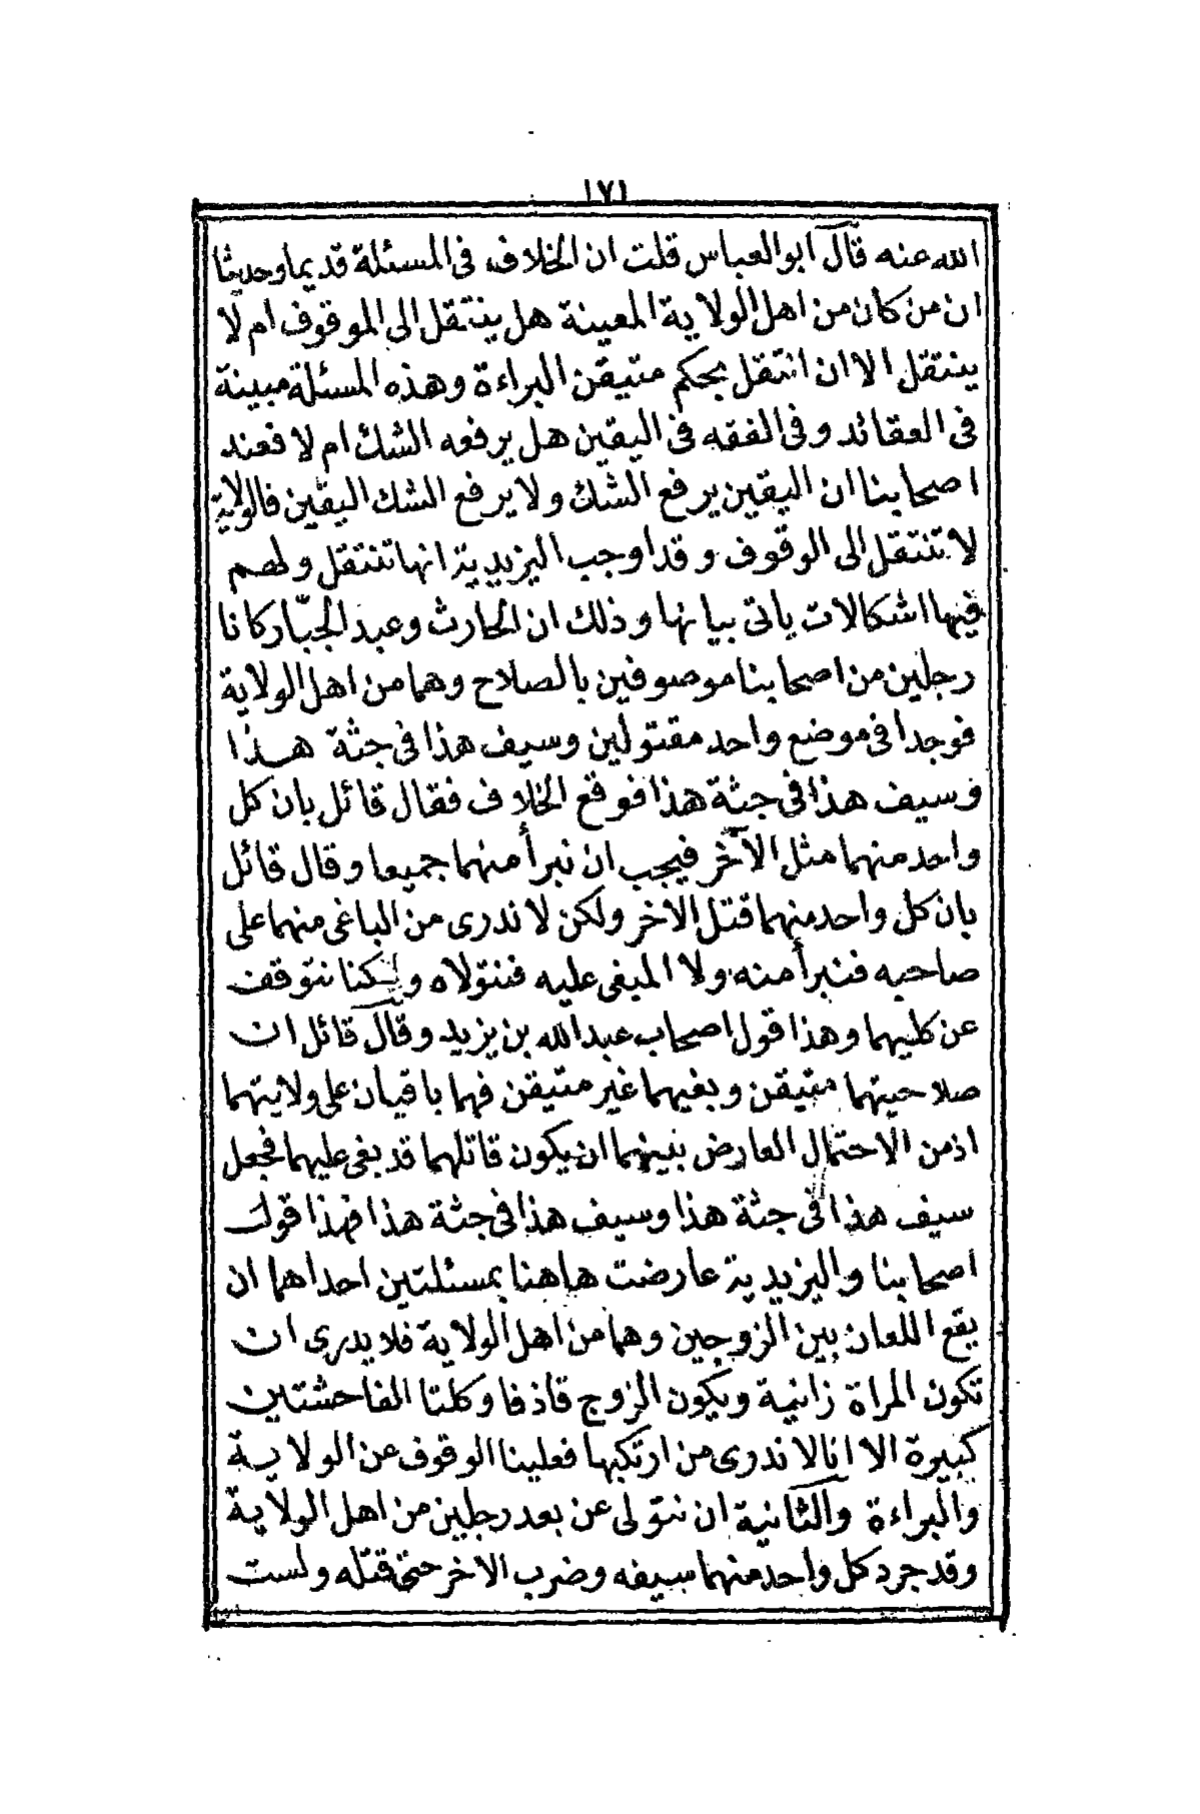 ١٧١
الله عنه قال ابو العباس قلت ان الخلاف فى المسئلة قديما وحديثا
ان من كان من اهل الولاية المعينة هل ينتقل الى الموقوف ام لا
ينتقل الا ان انتقل بحكم متيقن البراءة وهذه المسئلة مبينة
فى العقائد وفى الفقه فى اليقين هل يرفعه الشك ام لا فعند
اصحابنا ان اليقين يرفع الشك ولا يرفع الشك اليقين فالولاية
لا تنتقل الى الوقوف وقد اوجب اليزيدية انها تنتقل ولهم
فيها اشكالات ياتى بيانها وذلك ان الحارث وعبد الجبّار كانا
رجلين من اصحابنا موصوفين بالصلاح وهما من اهل الولاية
فوجدا فى موضع واحد مقتولين وسيف هذا فى جثة هذا
وسيف هذا فى جثة هذا فوقع الخلاف فقال قائل بان كل
واحد منهما مثل الآخر فيجب ان نبرأ منهما جميعا وقال قائل
بان كل واحد منهما قتل الاخر ولكن لا ندرى من الباغى منهما على
صاحبه فنبرأ منه ولا المبغى عليه فنتولاه ولكنا نتوقف
عن كليهما وهذا قول اصحاب عبد الله بن يزيد وقال قائل ان
صلاحيتهما متيقن وبغيهما غير متيقن فهما باقيان على ولايتهما
اذ من الاحتمال العارض بينهما ان يكون قاتلهما قد بغى عليهما فجعل
سيف هذا فى جثة هذا وسيف هذا فى جثة هذا فهذا قول
اصحابنا واليزيدية عارضت هاهنا بمسئلتين احداهما ان
يقع اللعان بين الزوجين وهما من اهل الولاية فلا يدرى ان
تكون المراة زانية ويكون الزوج قاذفا وكلتا الفاحشتين
كبيرة الا انا لا ندرى من ارتكبها فعلينا الوقوف عن الولاية
والبراءة والثانية ان نتولى عن بعد رجلين من اهل الولاية
وقد جرد كل واحد منهما سيفه وضرب الاخر حتى قتله ولست